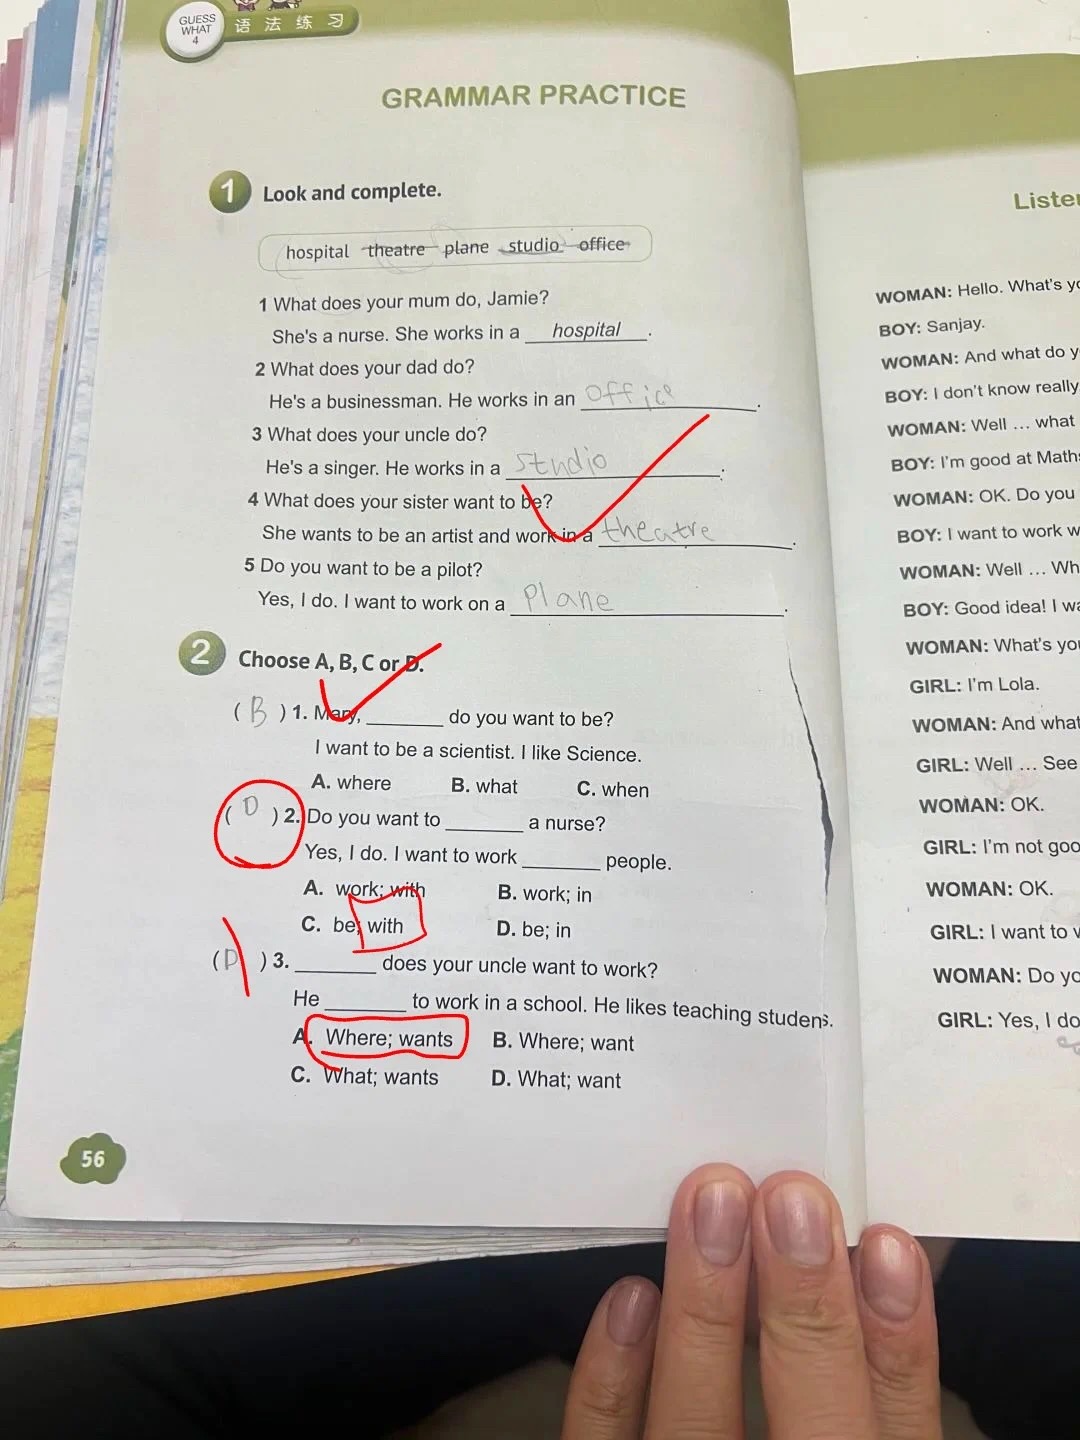 GUESS
WHAT
4
语法练习
GRAMMAR PRACTICE
1 Look and complete.
hospital theatre plane studio office
1 What does your mum do, Jamie?
She's a nurse. She works in a hospital.
2 What does your dad do?
He's a businessman. He works in an office.
3 What does your uncle do?
He's a singer. He works in a studio.
4 What does your sister want to be?
She wants to be an artist and work in a theatre.
5 Do you want to be a pilot?
Yes, I do. I want to work on a Plane.
2 Choose A, B, C or D.
(B) 1. Mary, ______ do you want to be?
I want to be a scientist. I like Science.
A. where B. what C. when
(D) 2. Do you want to ______ a nurse?
Yes, I do. I want to work ______ people.
A. work; with B. work; in
C. be; with D. be; in
(D) 3. ______ does your uncle want to work?
He ______ to work in a school. He likes teaching studens.
A. Where; wants B. Where; want
C. What; wants D. What; want
56
WOMAN: Hello. What's
BOY: Sanjay.
WOMAN: And what do
BOY: I don't know really
WOMAN: Well … what
BOY: I'm good at Maths
WOMAN: OK. Do you
BOY: I want to work
WOMAN: Well …
BOY: Good idea! I
WOMAN: What's
GIRL: I'm Lola.
WOMAN: And what
GIRL: Well … See
WOMAN: OK.
GIRL: I'm not
WOMAN: OK.
GIRL: I want to
WOMAN: Do
GIRL: Yes, I do